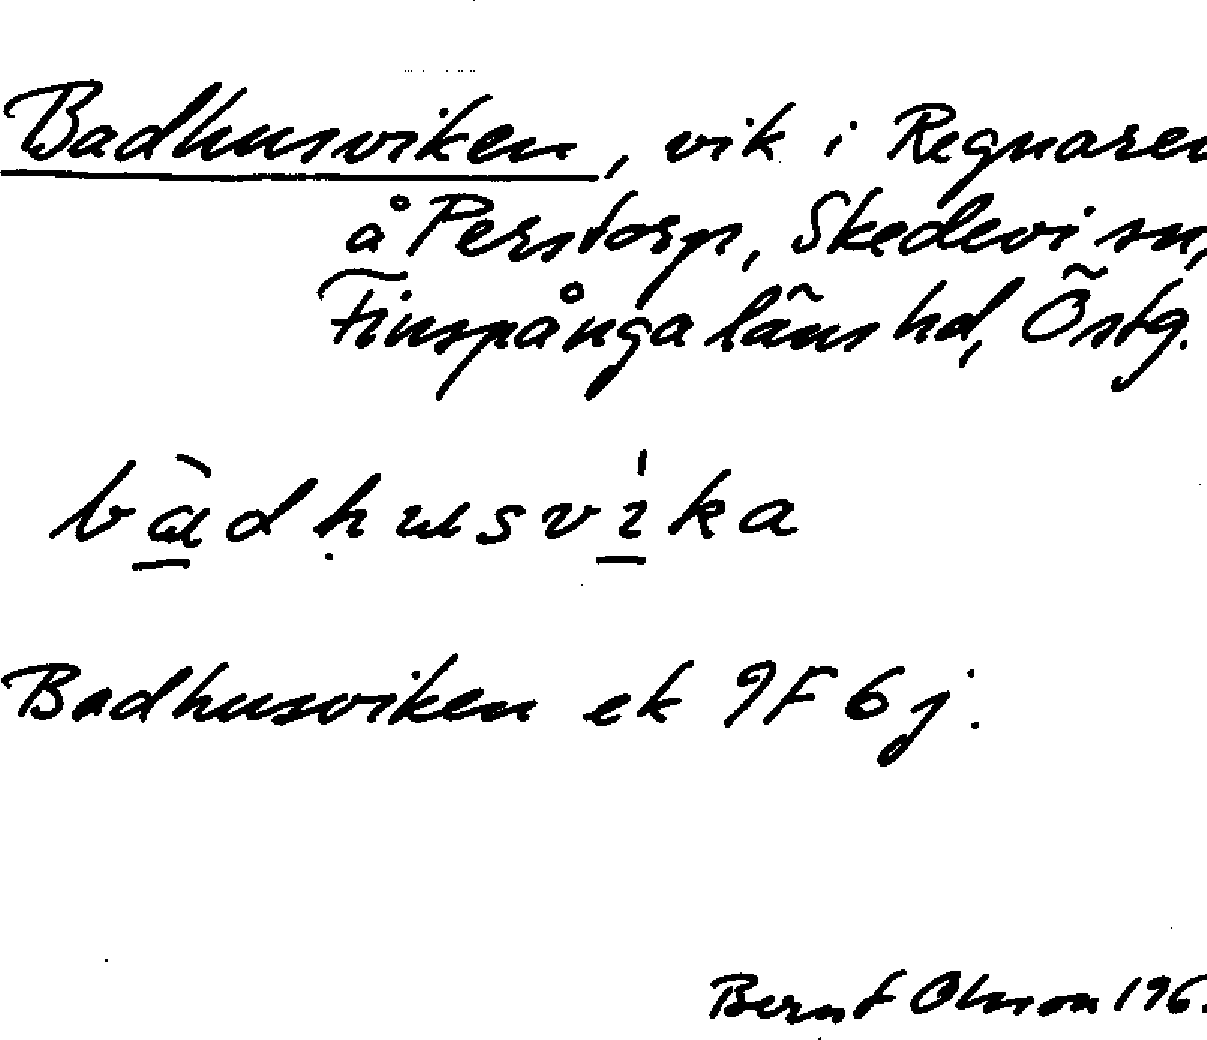 Badhusviken, vik i Regnaren
å Perstorp, Skedevi sn,
Finspånga läns hd, Östg.
bàdhusvika
Badhusviken ek 9F 6j.
Bernt Olsson 196